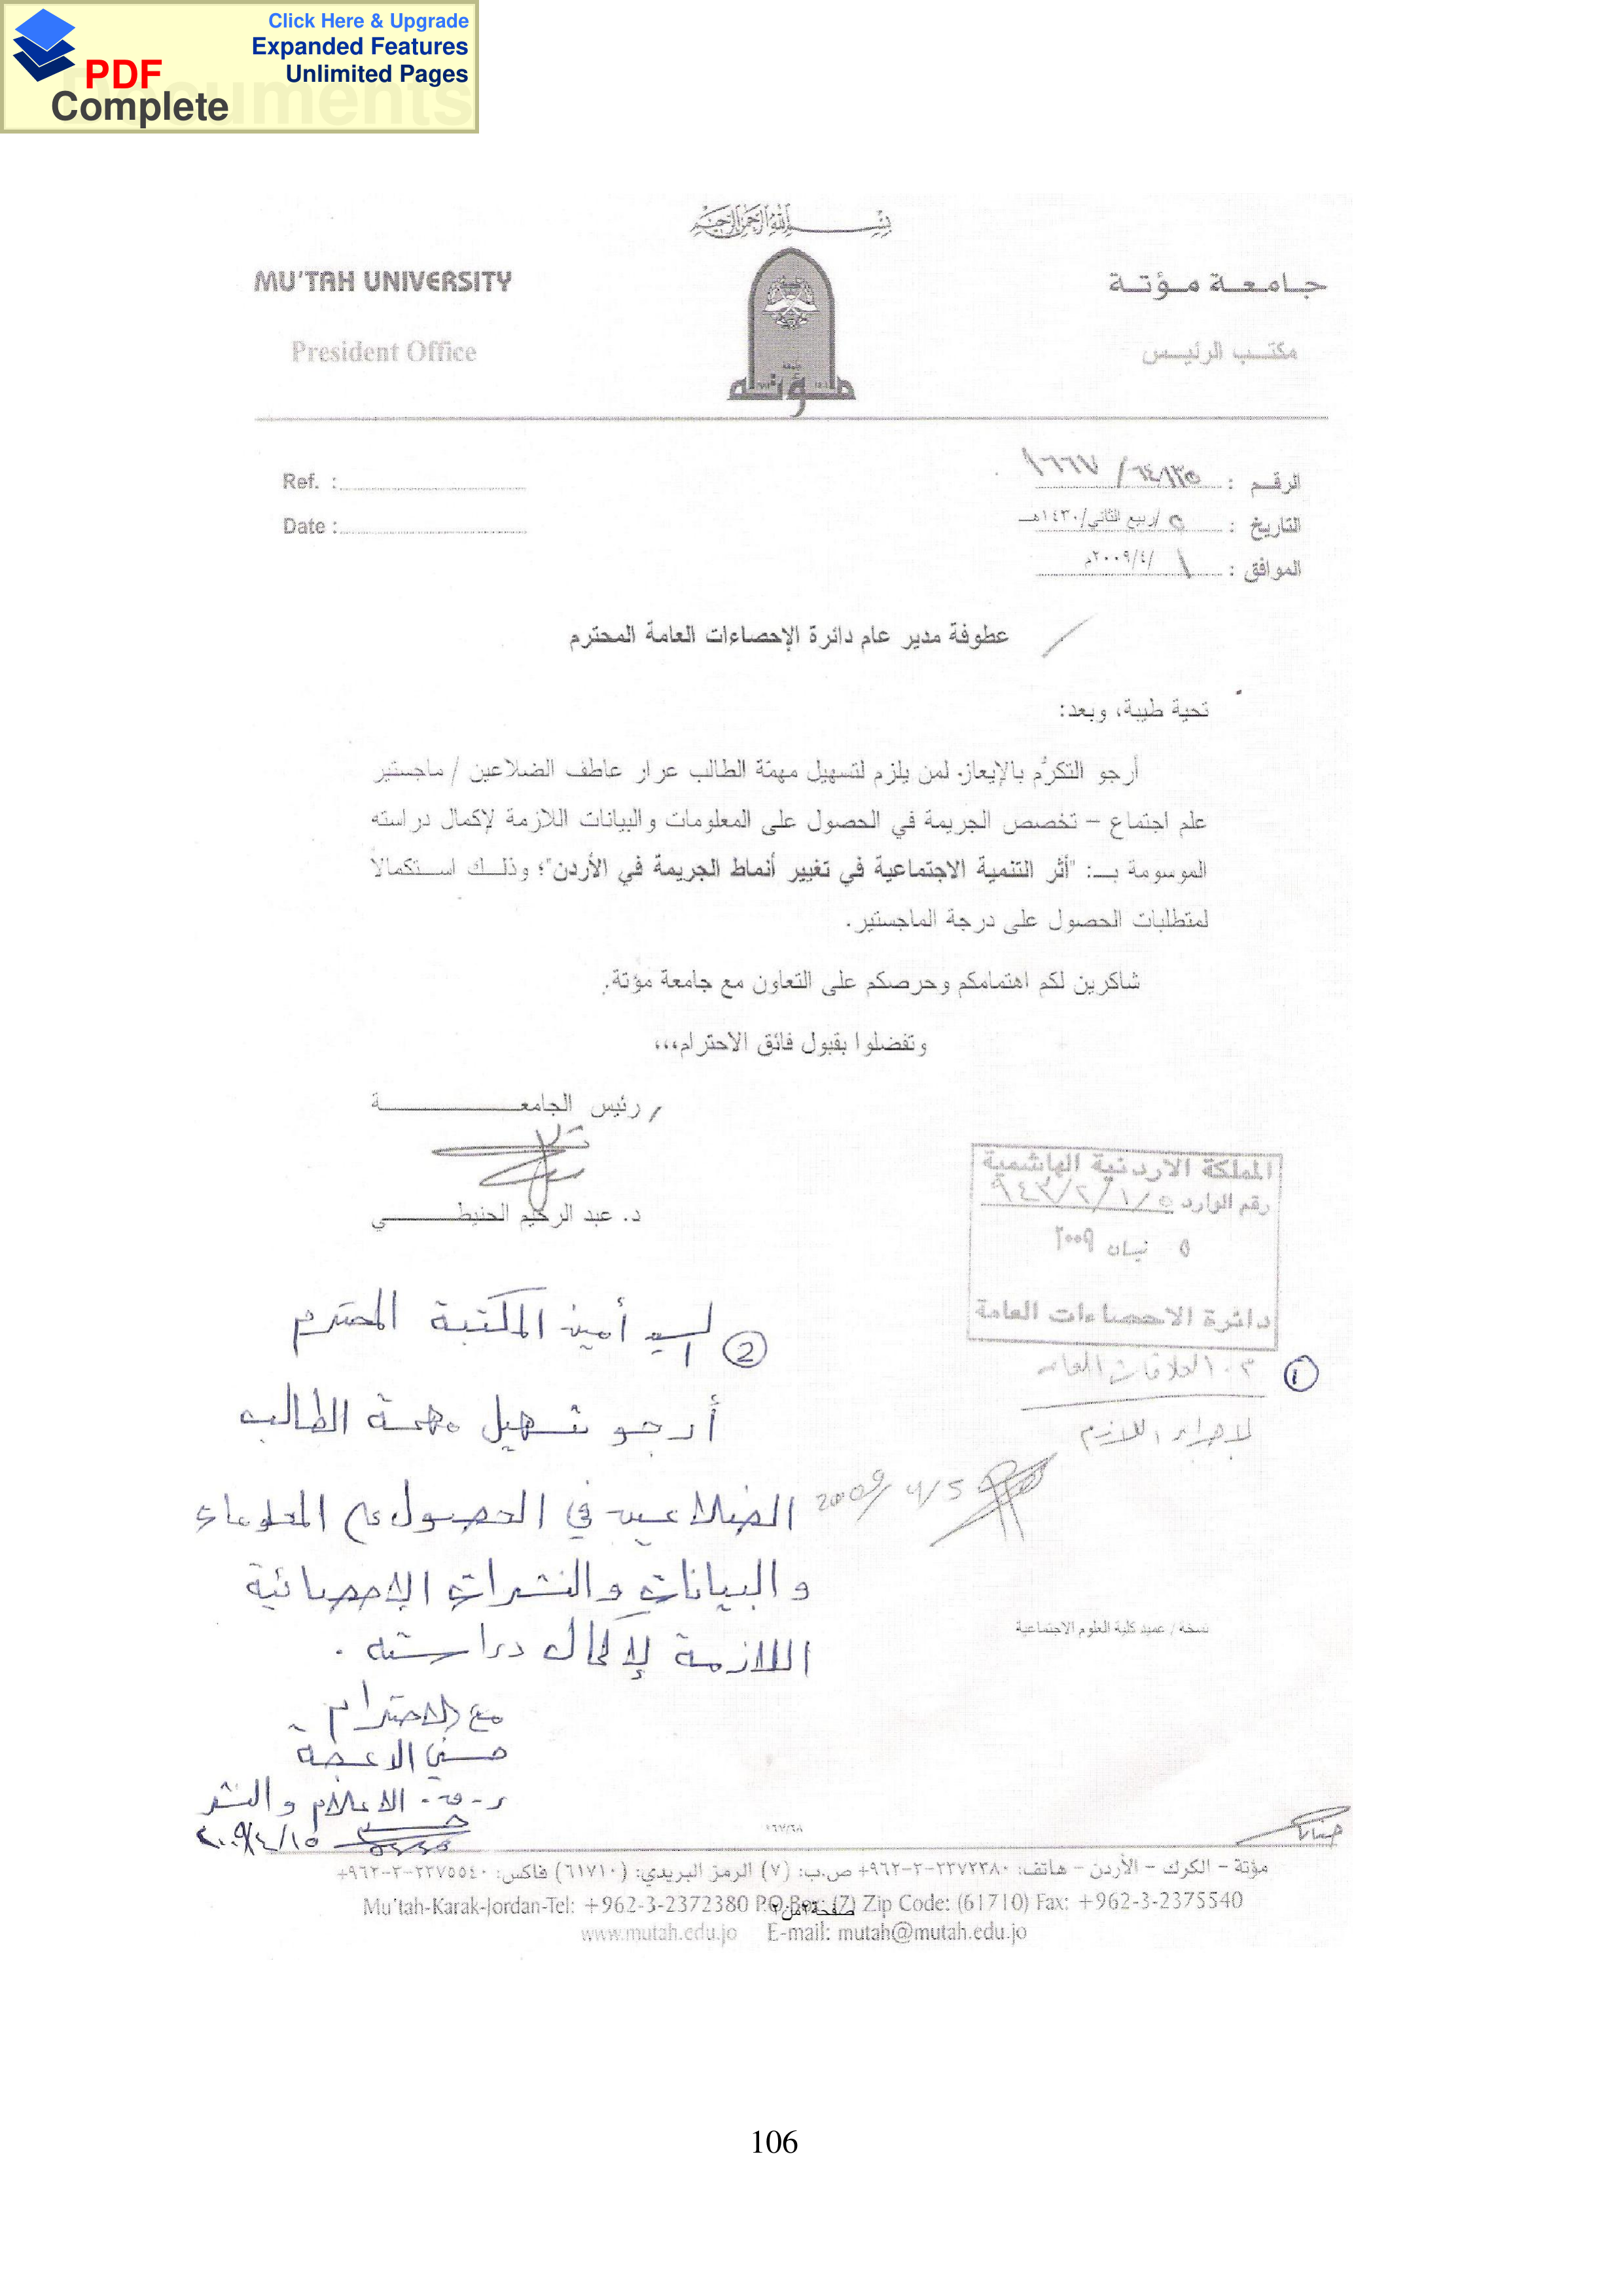 Click Here & Upgrade
Expanded Features
Unlimited Pages
PDF
Complete
Documents
بسم الله الرحمن الرحيم
MU'TAH UNIVERSITY
جامعة مؤتة
President Office
مكتب الرئيس
مؤتة
Ref. :
الرقم :
Date :
التاريخ : ٥ /ربيع الثاني/١٤٣٠هـ
الموافق : ١ /٢٠٠٩/٤م
عطوفة مدير عام دائرة الإحصاءات العامة المحترم
تحية طيبة، وبعد:
أرجو التكرُّم بالإيعاز لمن يلزم لتسهيل مهمّة الطالب عرار عاطف الضلاعين / ماجستير
علم اجتماع – تخصص الجريمة في الحصول على المعلومات والبيانات اللازمة لإكمال دراسته
الموسومة بـ: "أثر التنمية الاجتماعية في تغيير أنماط الجريمة في الأردن"؛ وذلك استكمالاً
لمتطلبات الحصول على درجة الماجستير.
شاكرين لكم اهتمامكم وحرصكم على التعاون مع جامعة مؤتة.
وتفضلوا بقبول فائق الاحترام،،،
/ رئيس الجامعة
د. عبد الرحيم الحنيطي
المملكة الاردنية الهاشمية
رقم الوارد ٩٤٣/٢/١/٥
٥ نيسان ٢٠٠٩
دائرة الاحصاءات العامة
① العلاقات العامه
لاجراء اللازم
2009/4/5
② السيد أمين المكتبة المحترم
أرجو تسهيل مهمة الطالب
الضلاعين في الحصول على المعلومات
والبيانات والنشرات الإحصائية
اللازمة لإكمال دراسته .
مع الاحترام
ر.ق. الاعلام والنشر
٢٠٠٩/٤/١٥
نسخة / عميد كلية العلوم الاجتماعية
مؤتة – الكرك – الأردن – هاتف: ٢٣٧٢٣٨٠-٣-٩٦٢+ ص.ب: (٧) الرمز البريدي: (٦١٧١٠) فاكس: ٢٣٧٥٥٤٠-٣-٩٦٢+
Mu'tah-Karak-Jordan-Tel: +962-3-2372380 P.O.Box: (7) Zip Code: (61710) Fax: +962-3-2375540
صفحة٢من٢
www.mutah.edu.jo E-mail: mutah@mutah.edu.jo
106